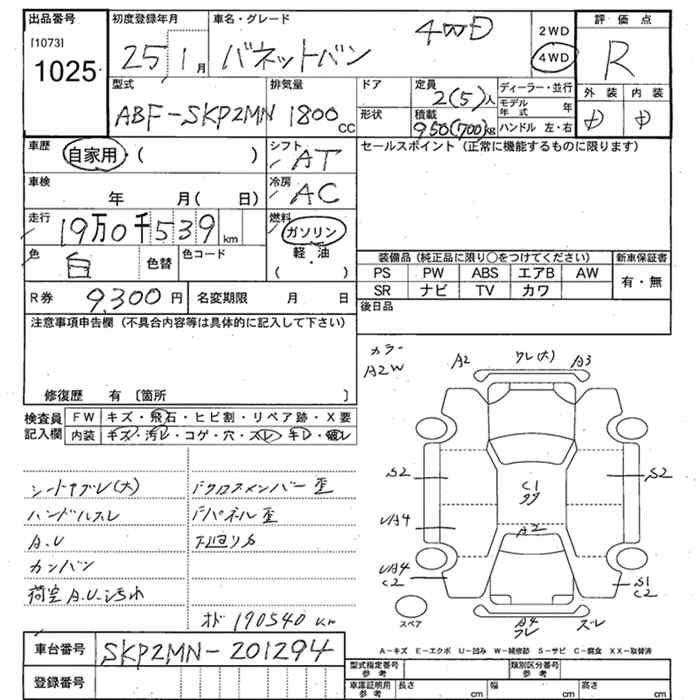 出品番号 初度登録年月 車名・グレード 評価点
[1073]
1025
25年 1月 バネットバン 4WD
2WD
4WD
R
型式 排気量 ドア 定員 ディーラー・並行 外装 内装
ABF-SKP2MN 1800cc
2(5)人
モデル年式 年
形状 積載
950(700)kg
ハンドル 左・右
車歴 自家用・( ) シフト AT
セールスポイント (正常に機能するものに限ります)
車検 年 月( 日) 冷房 AC
走行 19万0千539km 燃料 ガソリン
軽・油
( ・ )
色 白 色替 色コード
装備品 (純正品に限り○をつけてください) 新車保証書
PS PW ABS エアB AW
有・無
SR ナビ TV カワ
R券 9,300円 名変期限 月 日
後日品
注意事項申告欄 (不具合内容等は具体的に記入して下さい)
修復歴 有 〔箇所 〕
検査員記入欄
FW キズ・飛石・ヒビ割・リペア跡・X要
内装 キズ・汚レ・コゲ・穴・スレ・キレ・破レ
シートヤブレ(大)
ハンドルスレ
A.U
カンバン
荷室A.U.汚れ
Fクロスメンバー歪
Fパネル歪
下廻りS
オド 190540km
カラー
A2W
A2 ワレ(大) A3
S2 C1 S2
A2
UA4
UA4
C2
S1
C2
スペア
A4
ワレ
ズレ
A-キズ E-エクボ U-凹み W-補修跡 S-サビ C-腐食 XX-取替済
車台番号 SKP2MN-201294
登録番号
型式指定番号 参考 類別区分番号 参考
車庫証明用 参考 長さ cm 幅 cm 高さ cm